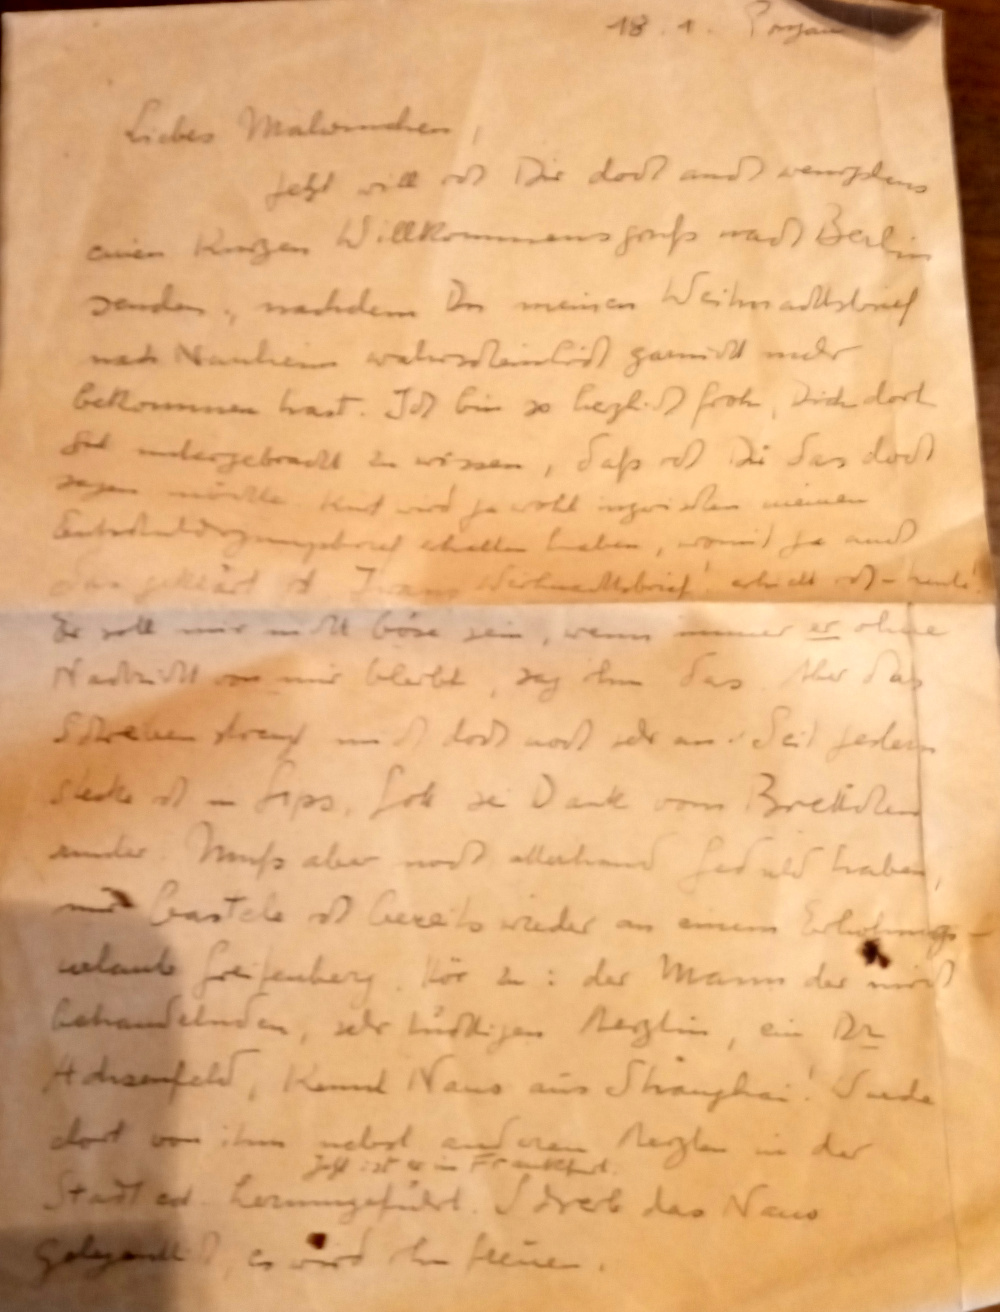 18. 1.
Liebes
Jetzt will ich Dir doch auch wenigstens
einen kurzen Willkommensgruß nach Berlin
senden, nachdem Du meinen Weihnachtsbrief
nach Nauheim wahrscheinlich garnicht mehr
bekommen hast. Ich bin so herzlich froh, Dich dort
gut untergebracht zu wissen, daß ich Dir das doch
sagen möchte. wird ja wohl inzwischen meinen
Entschuldigungsbrief erhalten haben, womit ja auch
das geklärt ist. Weihnachtsbrief erhielt ich – heute!
Er soll mir nicht böse sein, wenn immer er ohne
Nachricht von mir bleibt, sag ihm das. Aber das
Schreiben strengt mich doch noch sehr an. Seit gestern
stecke ich in Gips, Gott sei Dank vom Brettchen
runter. Muß aber noch allerhand Geduld haben,
und bastele ich bereits wieder an einem Erholungs-
urlaub Greifenberg. Hör zu: der Mann der mich
behandelnden, sehr tüchtigen Aerztin, ein Dr
kennt Naus aus Shanghai! Wurde
dort von ihm nebst anderen Aerzten in der
jetzt ist er in Frankfurt.
Stadt herumgeführt. Schreib das Naus
gelegentlich, es wird ihn freuen.